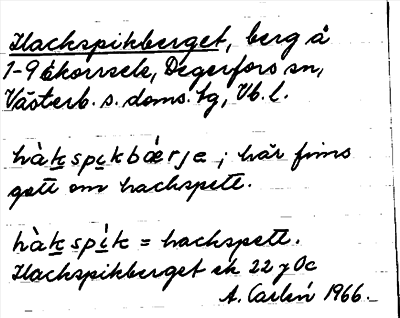 Hackspikberget, berg å
1-9 Ekorrsele, Degerfors sn,
Västerb. s. doms. tg, Vb. l.
hàkspikbǽrjɐ ; här finns
gott om hackspett.
hàkspìk = hackspett.
Hackspikberget ek 22 y Oc
A. Carlén 1966.